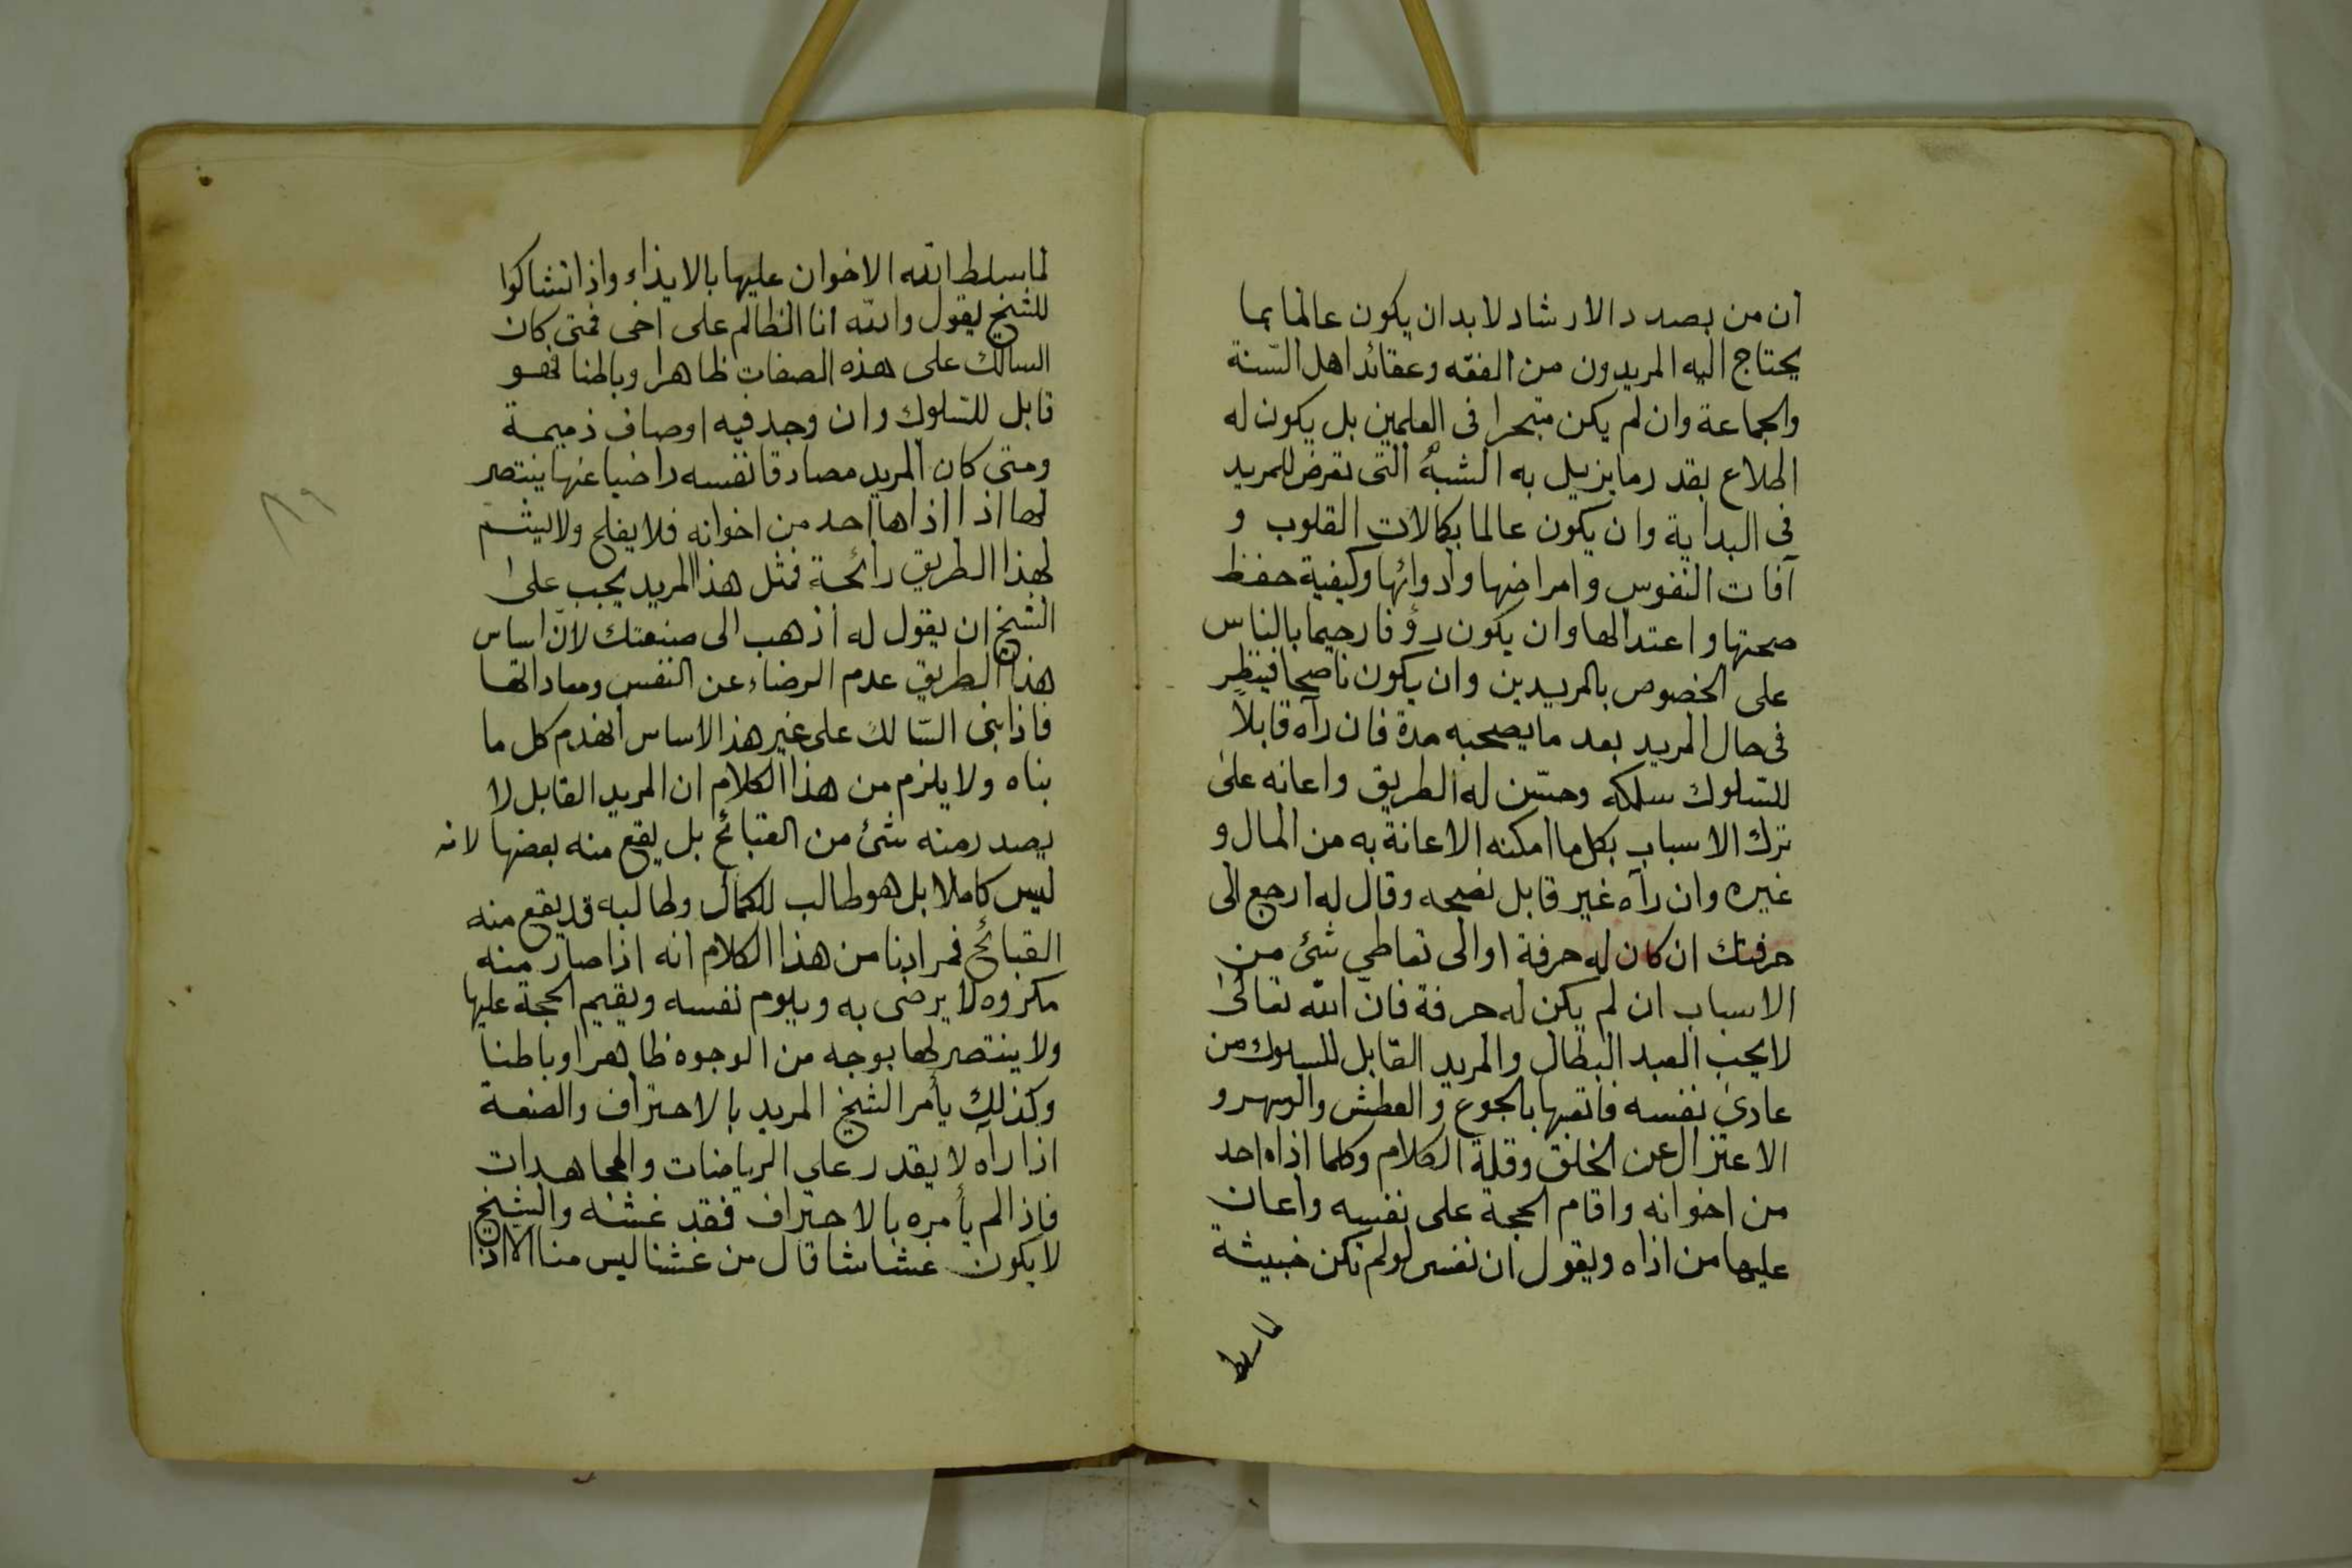 ان من بصدد الارشاد لابد ان يكون عالما بما
يحتاج اليه المريدون من الفقه وعقائد اهل السّنة
والجماعة وان لم يكن متبحرا فى العلمين بل يكون له
اطلاع بقدر ما يزيل به الشبهُ التى تعرض للمريد
فى البداية وان يكون عالما بكمالات القلوب و
آفات النفوس وامراضها وادوائها وكيفية حفظ
صحتها واعتدالها وان يكون رؤفا رحيما بالناس
على الخصوص بالمريدين وان يكون ناصحا فينظر
فى حال المريد بعد ما يصحبه مدة فان رآه قابلاً
للسّلوك سلكه وحسّن له الطريق واعانه على
ترك الاسباب بكل ما امكنه الاعانة به من المال و
غيره وان رآه غير قابل نصحه وقال له ارجع الى
حرفتك ان كان له حرفة او الى تعاطى شئ من
الاسباب ان لم يكن له حرفة فانّ الله تعالىٰ
لا يحب العبد البطال والمريد القابل للسلوك من
عادىٰ نفسه فاتعبها بالجوع والعطش والسهر و
الاعتزال عن الخلق وقلة الكلام وكلما اذاه احد
من اخوانه واقام الحجة على نفسه واعان
عليها من اذاه ويقول ان نفسى لو لم تكن خبيثة
لما سلط
لما سلط الله الاخوان عليها بالايذاء واذا تشاكوا
للشيخ يقول والله انا الظالم على اخى فمتى كان
السالك على هذه الصفات ظاهرا وباطنا فهو
قابل للسّلوك وان وجد فيه اوصاف ذميمة
ومتى كان المريد مصادقا نفسه راضيا عنها ينتصر
لها اذا اذاها احد من اخوانه فلا يفلح ولا يشم
لهذا الطريق رائحة فمثل هذا المريد يجب علىٰ
الشيخ ان يقول له اذهب الى صنعتك لانّ اساس
هذا الطريق عدم الرضاء عن النفس ومعاداتها
فاذا بنى السّالك على غير هذا الاساس انهدم كل ما
بناه ولا يلزم من هذا الكلام ان المريد القابل لا
يصدر منه شئ من القبائح بل يقع منه بعضها لانه
ليس كاملا بل هو طالب للكمال وطالبه قد يقع منه
القبائح فمرادنا من هذا الكلام انه اذا صار منه
مكروه لا يرضى به ويلوم نفسه ويقيم الحجة عليها
ولا ينتصر لها بوجه من الوجوه ظاهرا وباطنا
وكذلك يأمر الشيخ المريد بالاحتراف والصنعة
اذا رآه لا يقدر على الرياضات والمجاهدات
فاذا لم يأمره بالاحتراف فقد غشه والشيخ
لا يكون غشاشا قال من غشنا ليس منا الا اذا
٨٩